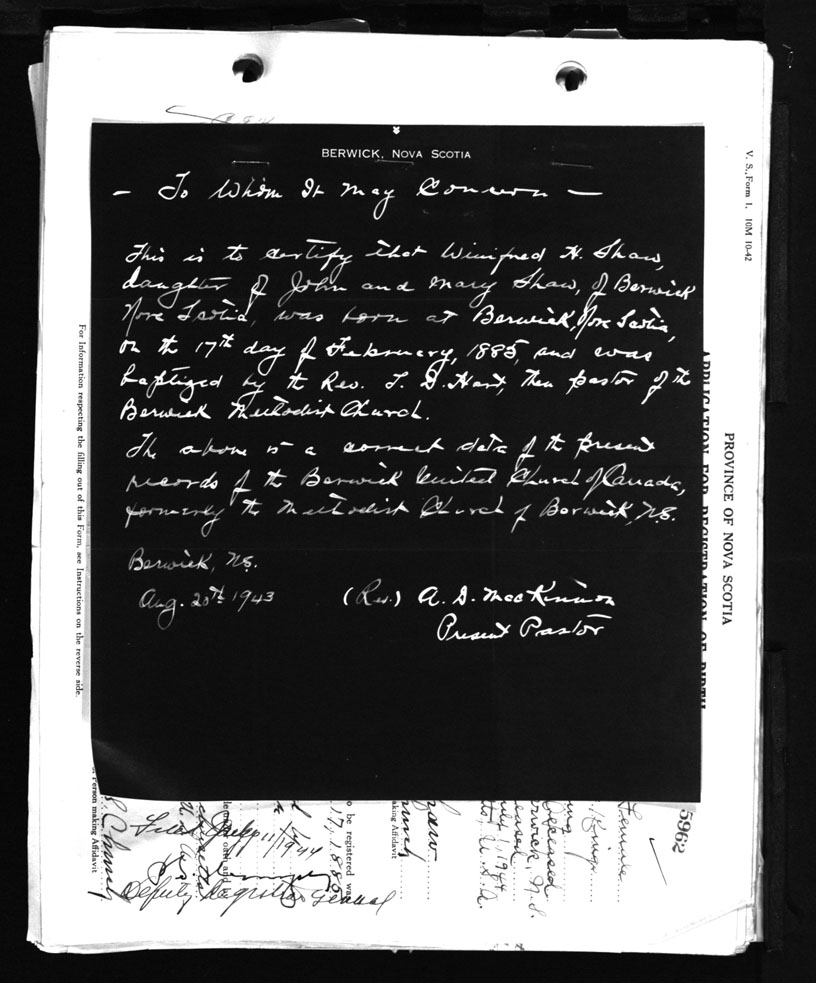 BERWICK, NOVA SCOTIA
- To Whom It May Concern -
This is to certify that Winifred H. Shaw,
daughter of John and Mary Shaw, of Berwick
Nova Scotia, was born at Berwick, Nova Scotia,
on the 17th day of February, 1885, and was
baptized by the Rev. T. D. Hart, then pastor of the
Berwick Methodist Church.
The above is a correct data of the present
records of the Berwick United Church of Canada,
formerly the Methodist Church of Berwick, N.S.
Berwick, N.S.
Aug. 20th 1943 (Rev.) A. D. MacKinnon
Present Pastor
V. S., Form 1. 10M 10-42
PROVINCE OF NOVA SCOTIA
APPLICATION FOR REGISTRATION OF BIRTH
For Information respecting the filling out of this Form, see Instructions on the reverse side.
5962
Kings
Deceased
Berwick, N.S.
1, 1944
U.S.A.
making Affidavit
to be registered was
17, 1885
oath and
Person making Affidavit
Filed July 11/1944
Deputy Registrar General